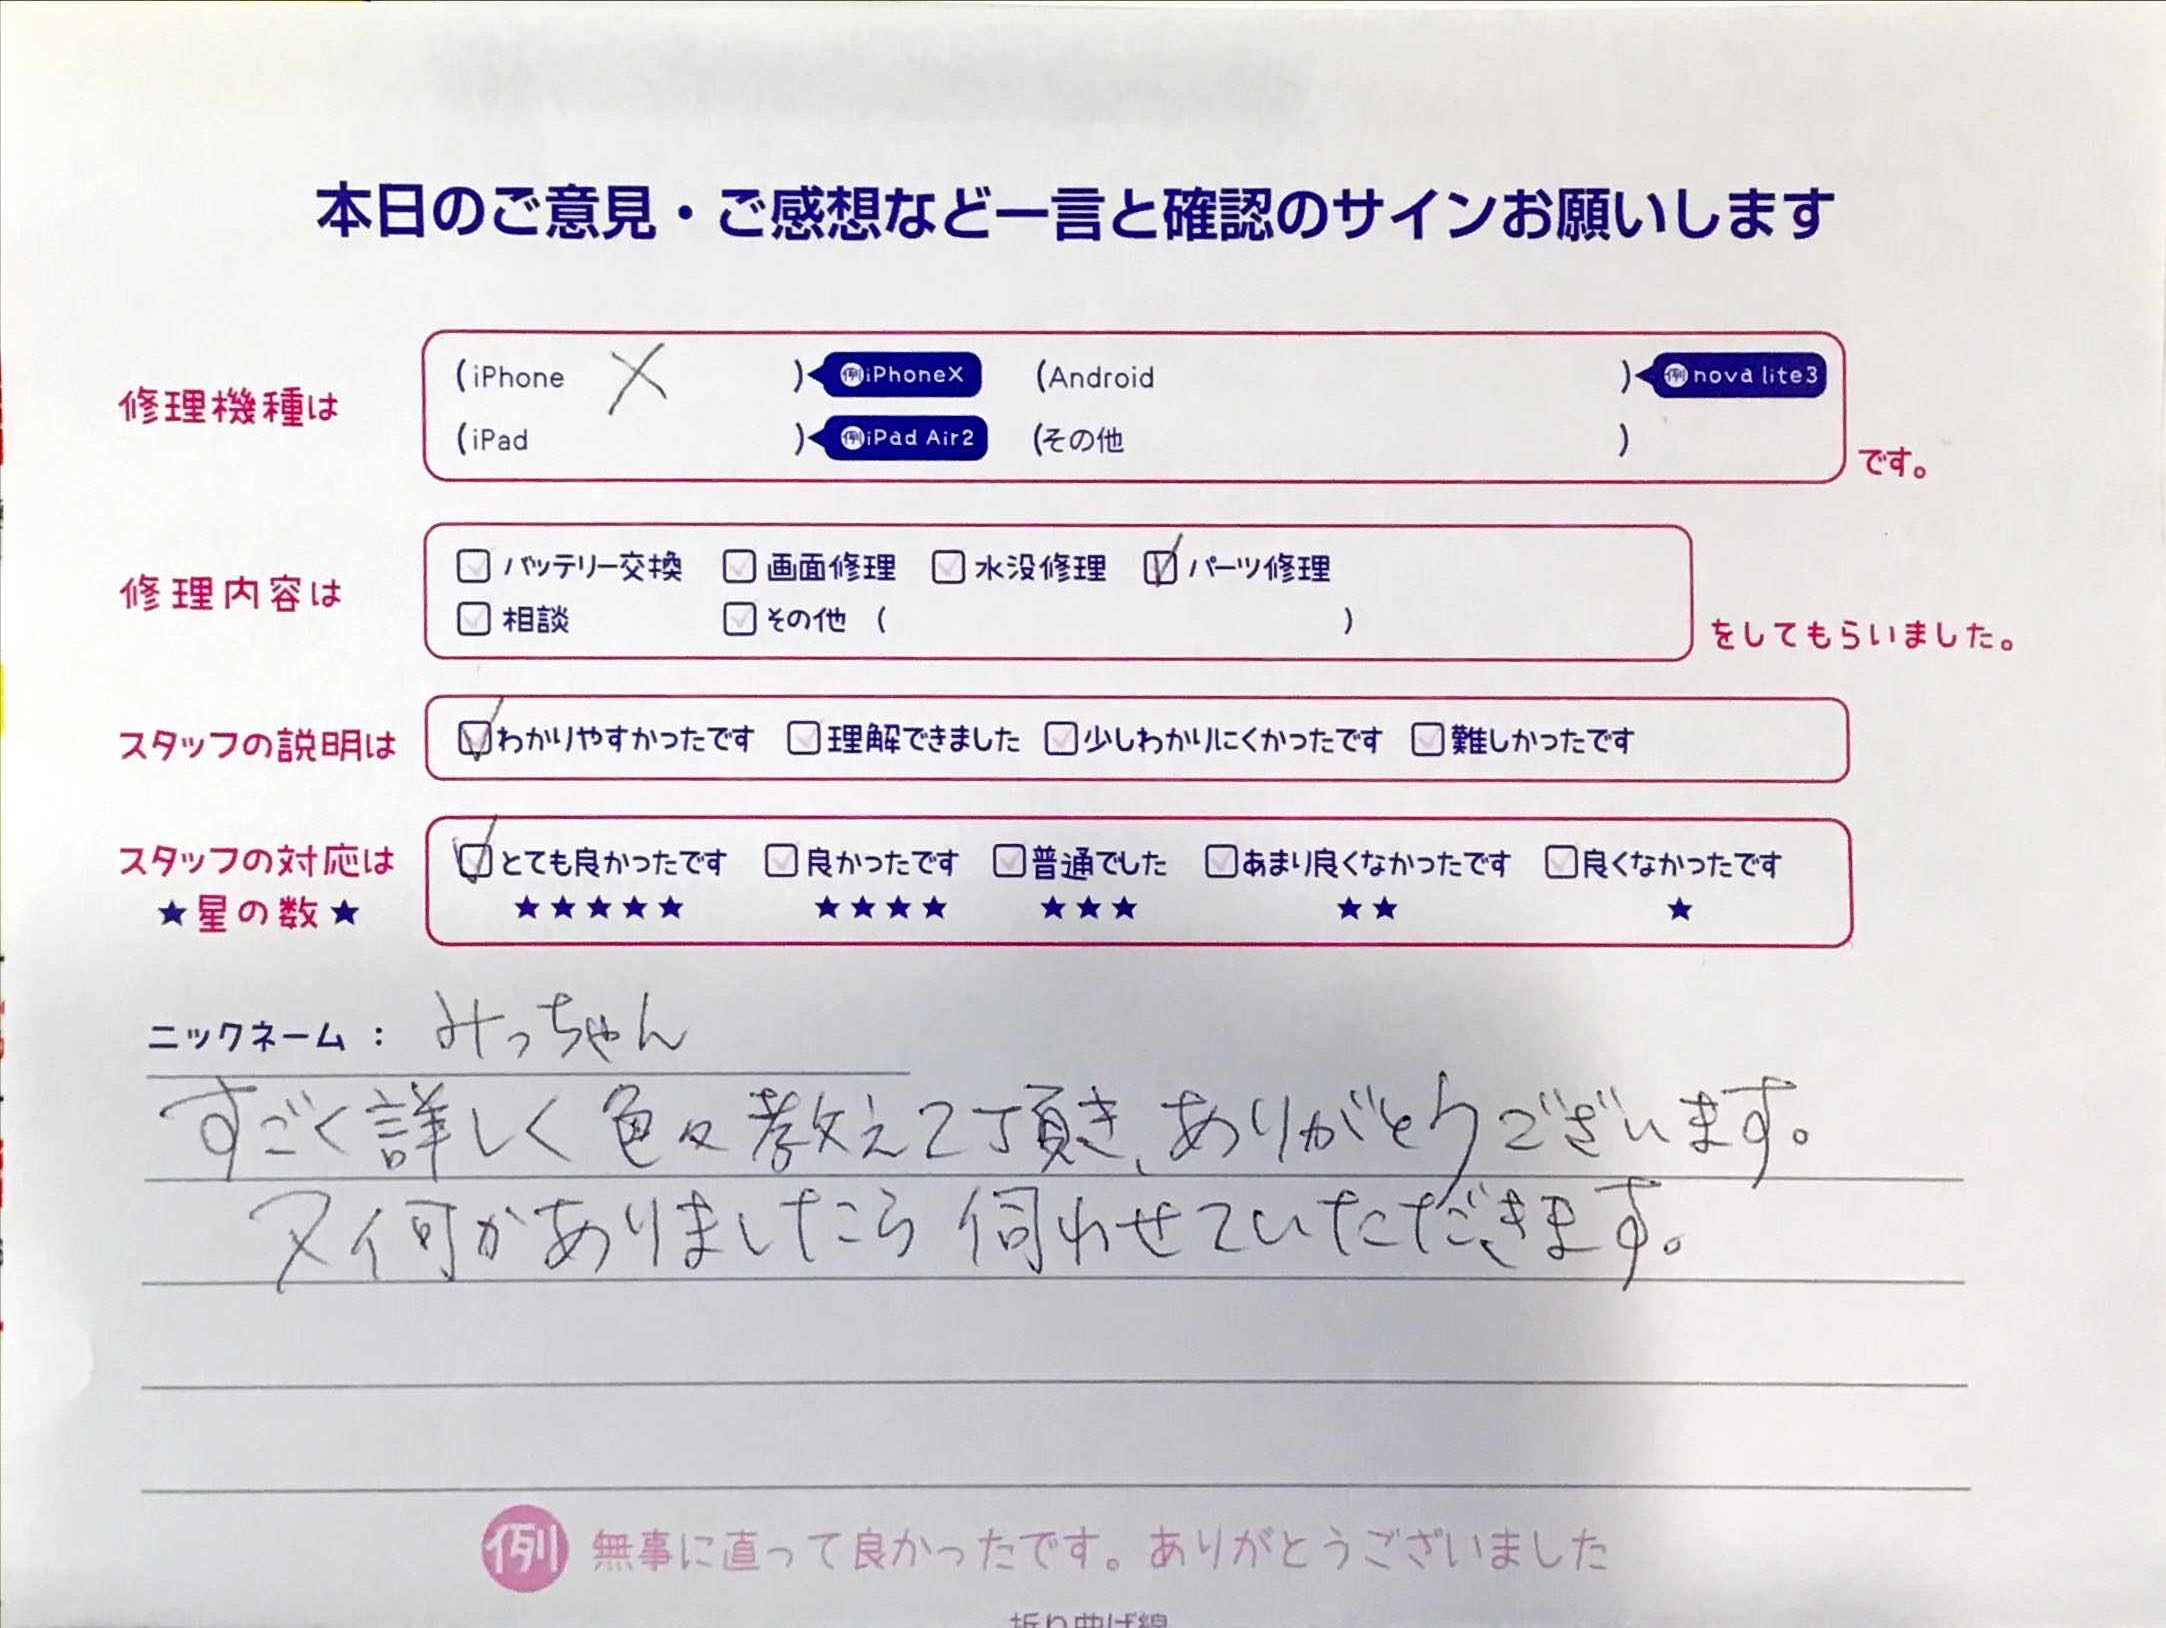 本日のご意見・ご感想など一言と確認のサインお願いします
修理機種は
(iPhone X ) 例iPhoneX (Android ) 例nova lite3
(iPad ) 例iPad Air2 (その他 )
です。
修理内容は
バッテリー交換 画面修理 水没修理 パーツ修理
相談 その他 ( )
をしてもらいました。
スタッフの説明は
わかりやすかったです 理解できました 少しわかりにくかったです 難しかったです
スタッフの対応は
とても良かったです 良かったです 普通でした あまり良くなかったです 良くなかったです
★星の数★
★★★★★ ★★★★ ★★★ ★★ ★
ニックネーム : みっちゃん
すごく詳しく色々教えて頂き、ありがとうございます。
又何かありましたら伺わせていただきます。
例 無事に直って良かったです。ありがとうございました
折り曲げ線